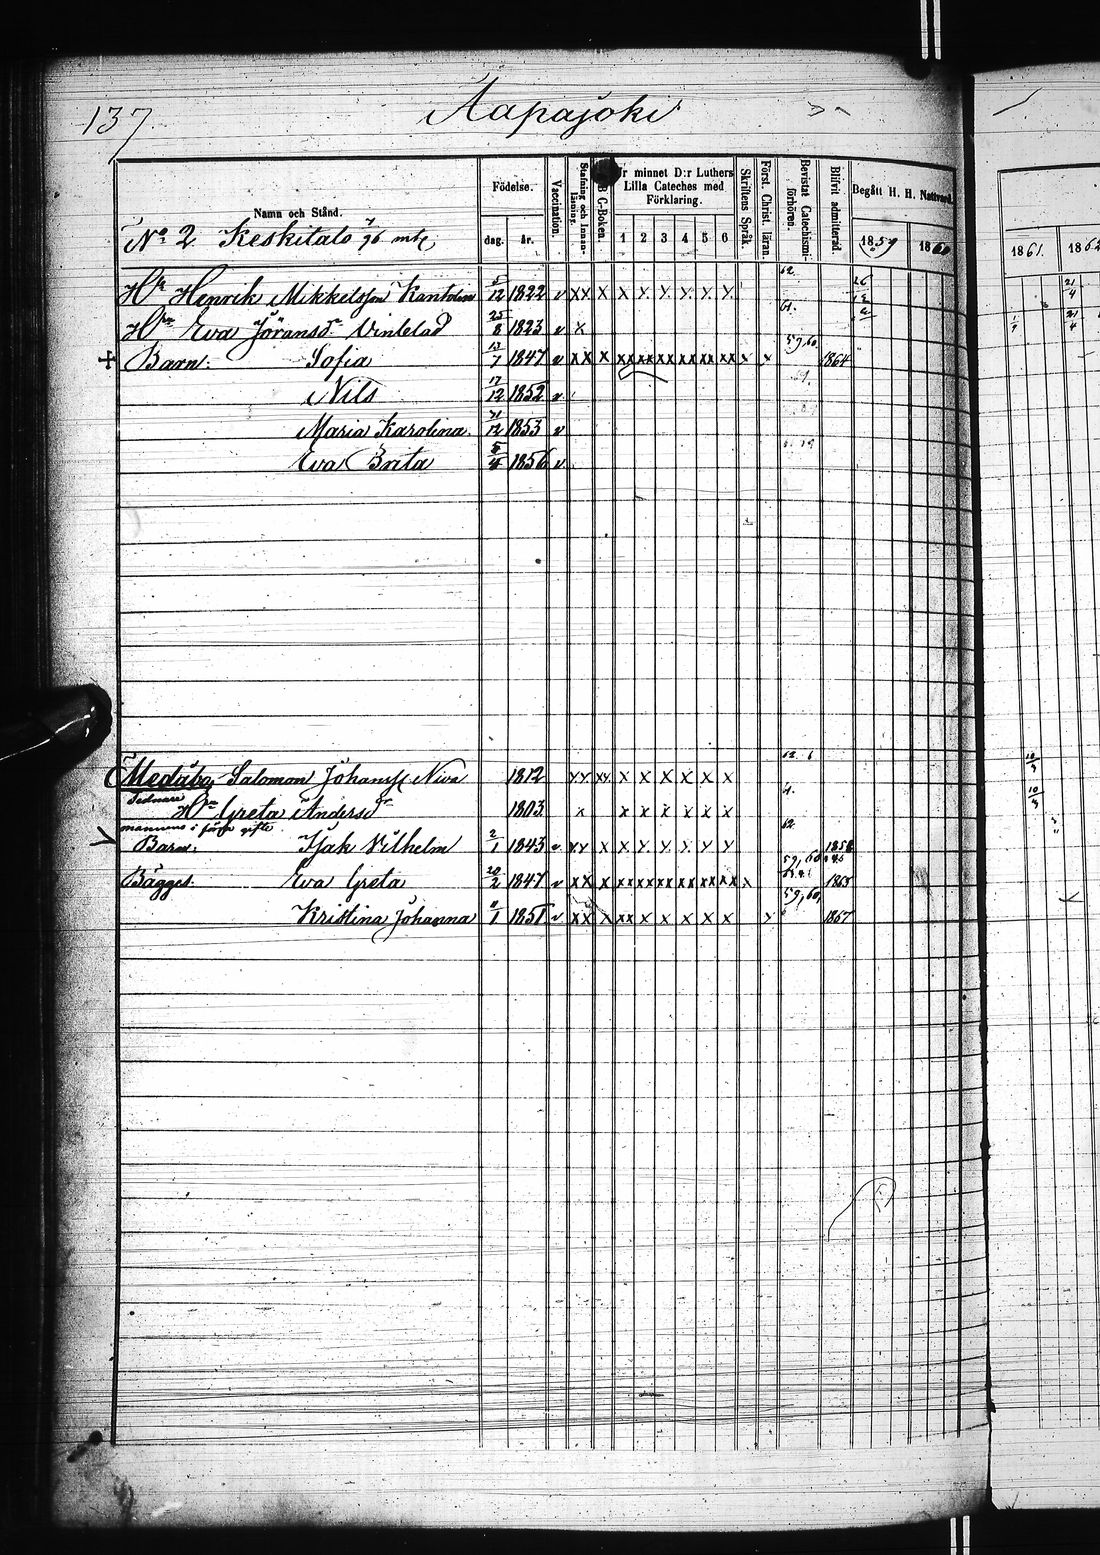 137
Aapajoki
Namn och Stånd.
Födelse.
dag. år.
Vaccination.
Stafning och Innanläsning.
B C-Boken.
r minnet D:r Luthers
Lilla Cateches med
Förklaring.
1 2 3 4 5 6
Skriftens Språk.
Först. Christ läran.
Bevistat Catechismiförhören.
Blifvit admitterad.
Begått H. H. Nattvard.
1859 1860
1861. 1862
No 2 Keskitalo
Henrik Mikkelsson 5/12 1822 v xx x x x x x x x 62.
Eva Göransdr 25/8 1823 v x 61.
Barn: Sofia 13/7 1847 v x x x xx xx xx xx xx xx x x 59,60 1864
Nils 17/12 1852 v
Maria Karolina 21/12 1853 v
Eva Brita 1856 v
Medåbo Salomon Johanss Niva 1812 xx xx x x x x x x 62
Hu Greta Andersdr 1803 x x x x x x x
mannens i förra gifte
Barn: Isak Wilhelm 2/1 1843 v xx x x x x x x x 62 1858
Bägges Eva Greta 20/2 1847 v xx x xx xx xx xx xx xx x 59,60 1865
Kristina Johanna 1851 v xx x xx x x x x x x 59,60, 1867